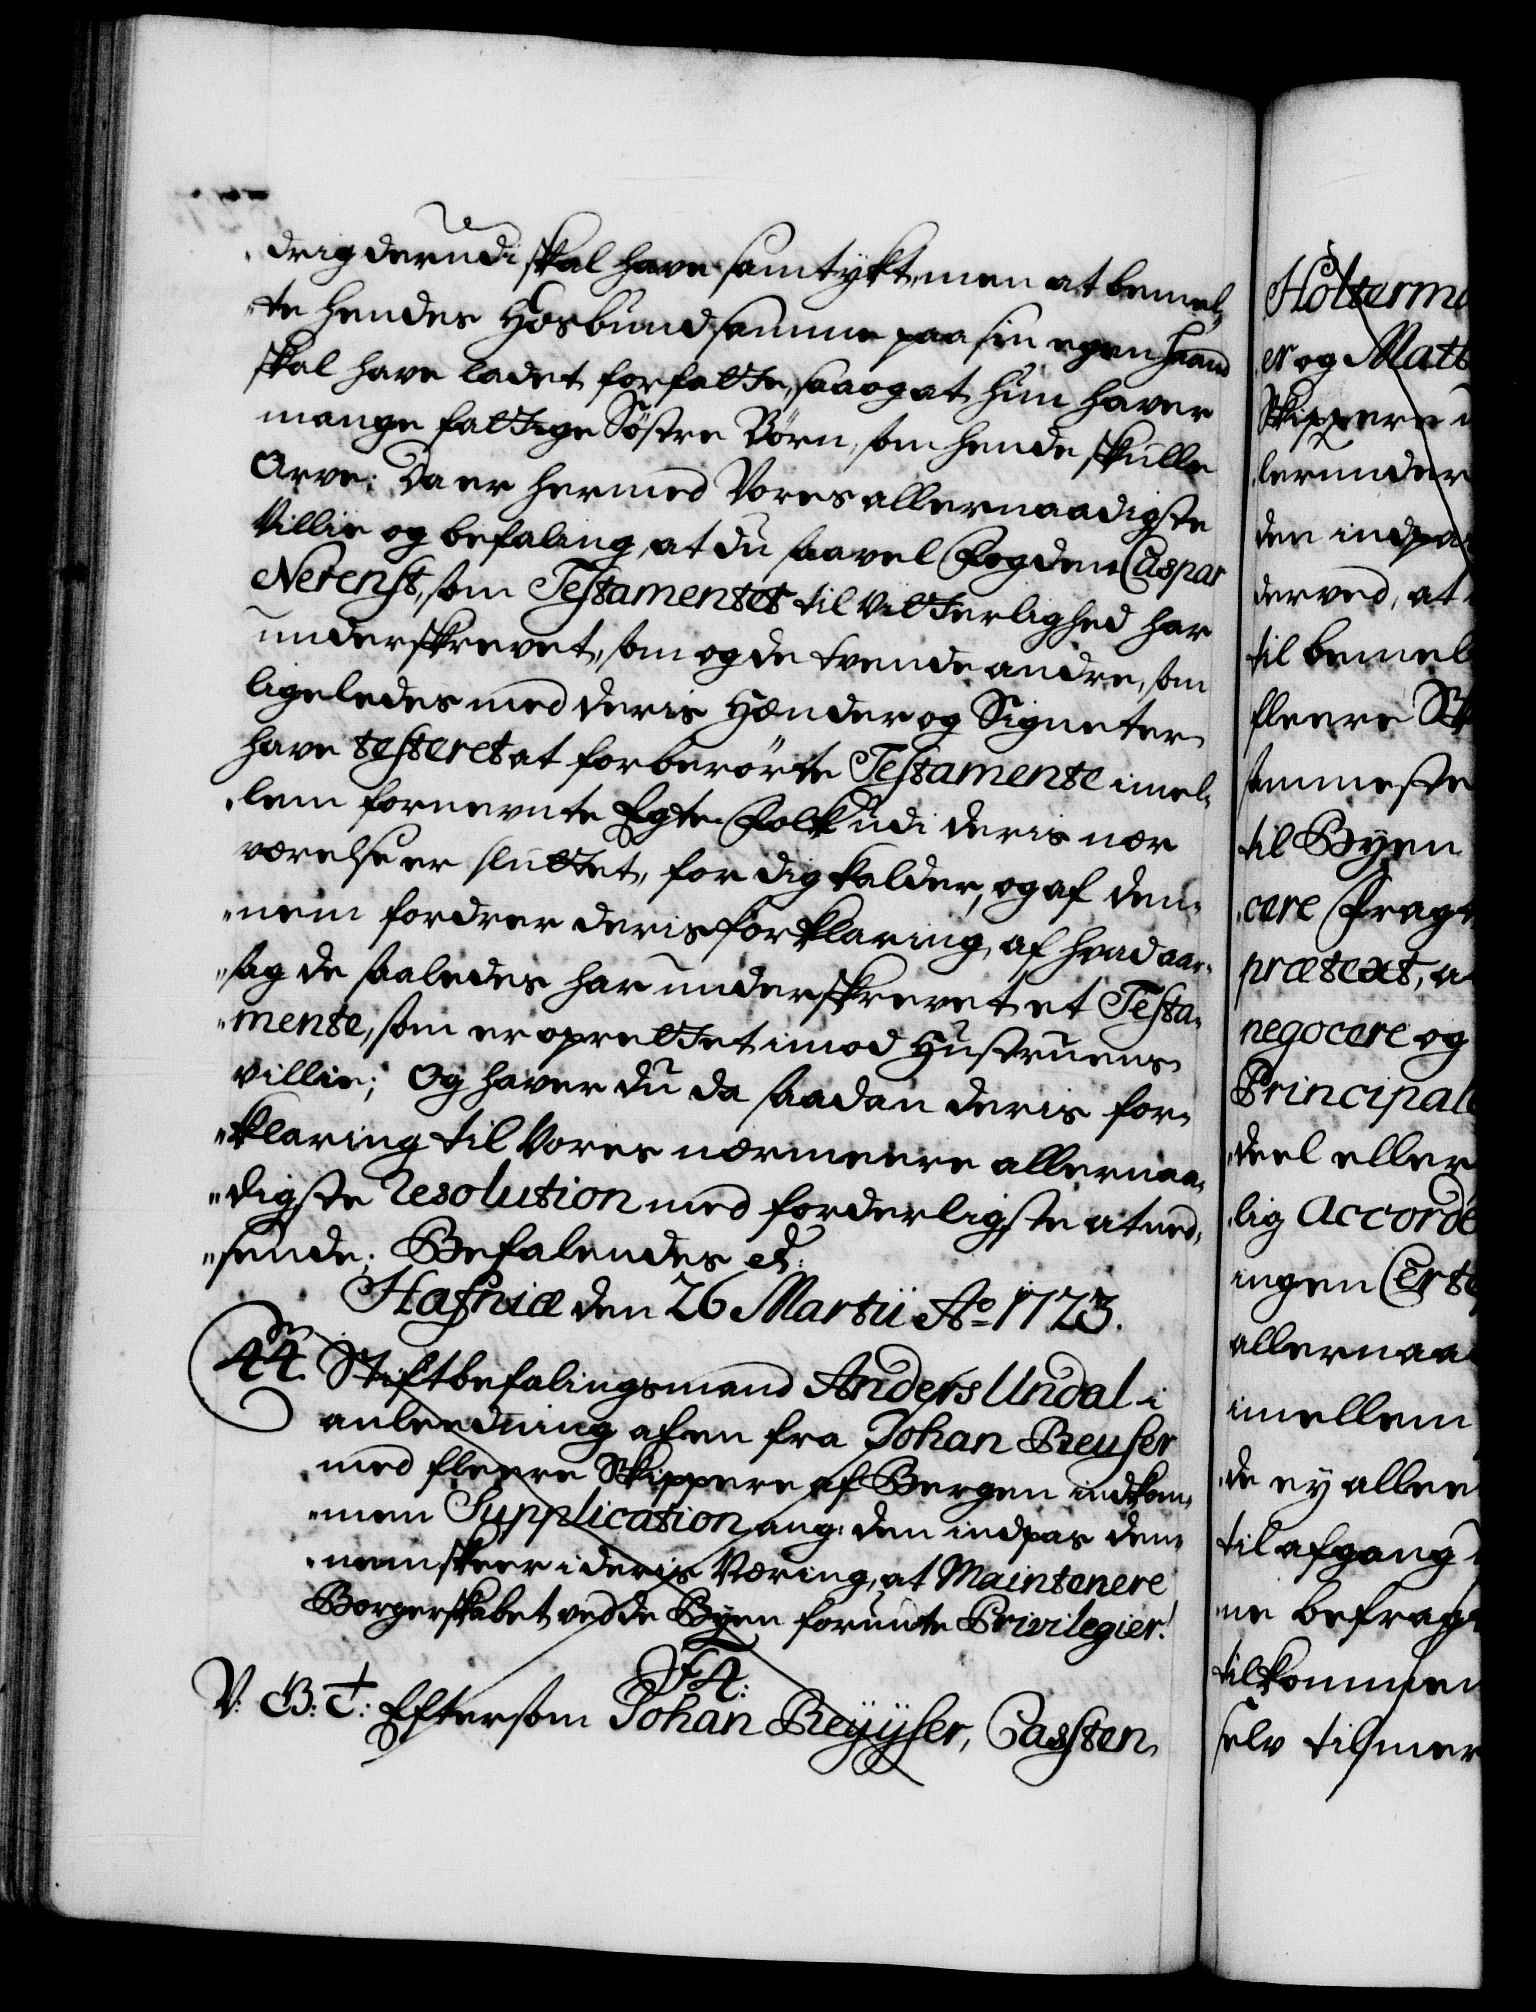 drig derudi skal have samtykt, men at bemel-
te hendes Hosbund samme paa sin egen Haand
skal have ladet forfatte, saa og at hun haver
mange fattige Söstre Börn, som hende skulle
Arve: Da er hermed Vores allernaadigste
Villie og befaling, at du saavel Fogden Caspar
Nerenst, som Testamentet til Vitterlighed har
underskrevet, som og de tvende andre, som
ligeledes med deris Hænder og Signeter
have testeret at forberörte Testamente imel-
lem fornevnte Egte-Folk udi deris nær
værelse er sluttet, for dig kalder, og af den-
nem fordrer deris forklaring, af hvad aar-
sag de saaledes har underskrevet et Testa-
mente, som er oprettet imod Hustruens
villie; Og haver du da saadan deris for-
klaring til Vores nærmeere allernaa-
digste Resolution med forderligste at ned-
sende. Befalendes etc:
Hafniæ den 26 Martii Ao 1723.
44. Stiftbefalingsmand Anders Undal i
anleedning af en fra Johan Reuser
med fleere Skippere af Bergen indkom-
men Supplication ang: den indpas den-
nem skeer i deris Næring, at Maintenere
Borgerskabet ved de Byen forundte Privilegier.
F4:
V: G: T: Eftersom Johan Reyyser, Cassten
Holterma
er og Matt
Skippere
lerunder
den indpa
derved, at
til bemel
fleere Sk
sammeste
til Byen
cere Fragt
prætext, a
negocere og
Principal
deel eller
lig Accorde
ingen Certe
allernaa
imellem
de ey allee
til afgang
ne befrag
tilkommen
selv tilmer